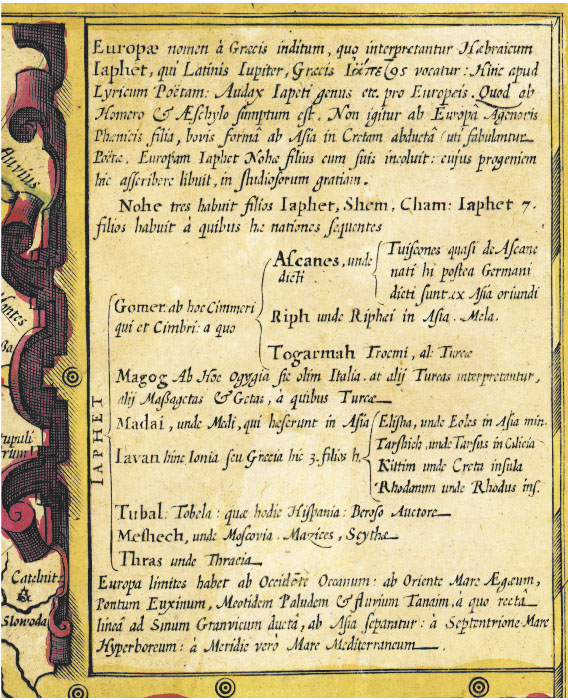 Europæ nomen à Græcis inditum, quo interpretantur Hæbraicum
Iaphet, qui Latinis Iupiter, Græcis Ιάπετος vocatur: Hinc apud
Lyricum Poëtam: Audax Iapeti genus etc. pro Europeis. Quod ab
Homero & Æschylo sumptum est. Non igitur ab Europa Agenoris
Phœnicis filia, bovis formâ ab Asia in Cretam abductâ (uti fabulantur
Poëtæ. Europam Iaphet Nohæ filius cum suis incoluit: cujus progeniem
hic asscribere libuit, in studiosorum gratiam.
Nohe tres habuit filios Iaphet, Shem, Cham: Iaphet 7.
filios habuit à quibus hæ nationes sequentes
IAPHET
Gomer. ab hoc Cimmeri
qui et Cimbri: a quo
Ascanes, unde
dicti
Tuiscones quasi de Ascane
nati hi postea Germani
dicti sunt. ex Asia oriundi
Riph unde Riphei in Asia. Mela.
Togarmah Trocmi, al: Turcæ
Magog Ab Hoc Ogygia sic olim Italia. at alij Turcas interpretantur,
alij Massagetas & Getas, à quibus Turcæ
Madai, unde Medi, qui heserunt in Asia
Iavan hinc Ionia seu Grecia hic 3. filios h.
Elisha, unde Eoles in Asia min.
Tarshich, unde Tarsus in Cilicia
Kittim unde Creta insula
Rhodanum unde Rhodus ins.
Tubal: Tobela: quæ hodie Hispania: Beroso Auctore
Meshech, unde Moscovia. Mazices, Scythæ
Thras unde Thracia
Europa limites habet ab Occidẽte Oceanum: ab Oriente Mare Ægæum,
Pontum Euxinum, Meotidem Paludem & fluvium Tanaim, à quo rectâ
lineâ ad Sinum Granvicum ductâ, ab Asia separatur: à Septentrione Mare
Hyperboreum: à Meridie verò Mare Mediterraneum
fluvius
Catelnit
Slowoda